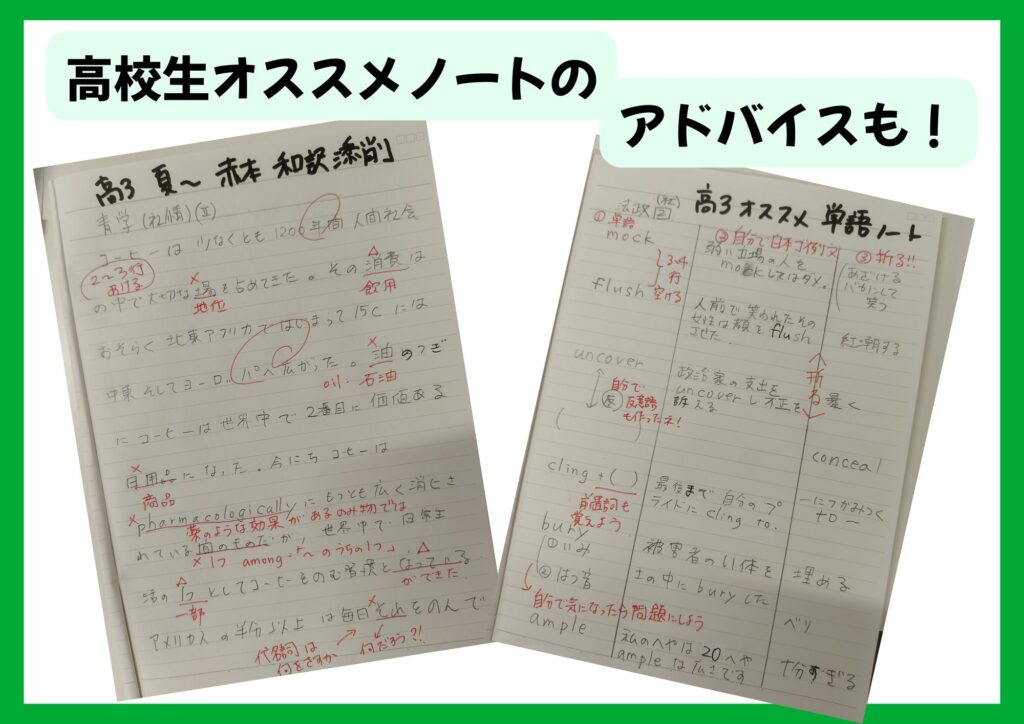 高校生オススメノートの
アドバイスも！
高3 夏〜 赤本 和訳 添削
青学(社情)(II)
コーヒーは 少なくとも 1200年間 人間社会
2〜3行
あける
の中で大切な場を占めてきた。その消費は
地位
飲用
おそらく 北東アフリカではじまって 15C には
中東 そしてヨーロッパへ広がった。油のつぎ
oil: 石油
に コーヒーは 世界中で 2番目に 価値ある
日用品になった。今にち コーヒーは
商品
pharmacologically にもっとも広く消ひさ
薬のような効果があるのみ物では
れている 面のものだが、世界中で 日常生
1つ among:「〜のうちの1つ」
活の 1つ としてコーヒーをのむ習慣となっている
一部
ができた
アメリカ人の半分以上 は毎日それをのんで
代名詞は
何をさすか
何だろう?!
高3 オススメ 単語ノート
法政(社)
2
① 単語
② 自分で日本ゴ例文
③ 折る!!
mock
弱い立場の人を
mockしてはダメ。
あざける
バカにして
笑う
3〜4
行
空ける
flush
人前で笑われたその
女性は顔をflush
させた.
紅潮する
uncover
政治家の支出を
uncoverし不正を
訴える
暴く
折る
反
自分で
反意語
も作ったネ!
( )
conceal
cling + ( )
最後まで 自分のプ
ライドに cling to.
―につかみつく
to ―
前置詞も
覚えよう
bury
被害者の 体を
土の中に buryした
埋める
①いみ
②はつ音
ベリ
自分で気になったら問題にしよう
ample
私のへやは 20へや
ampleな広さです
十分すぎる